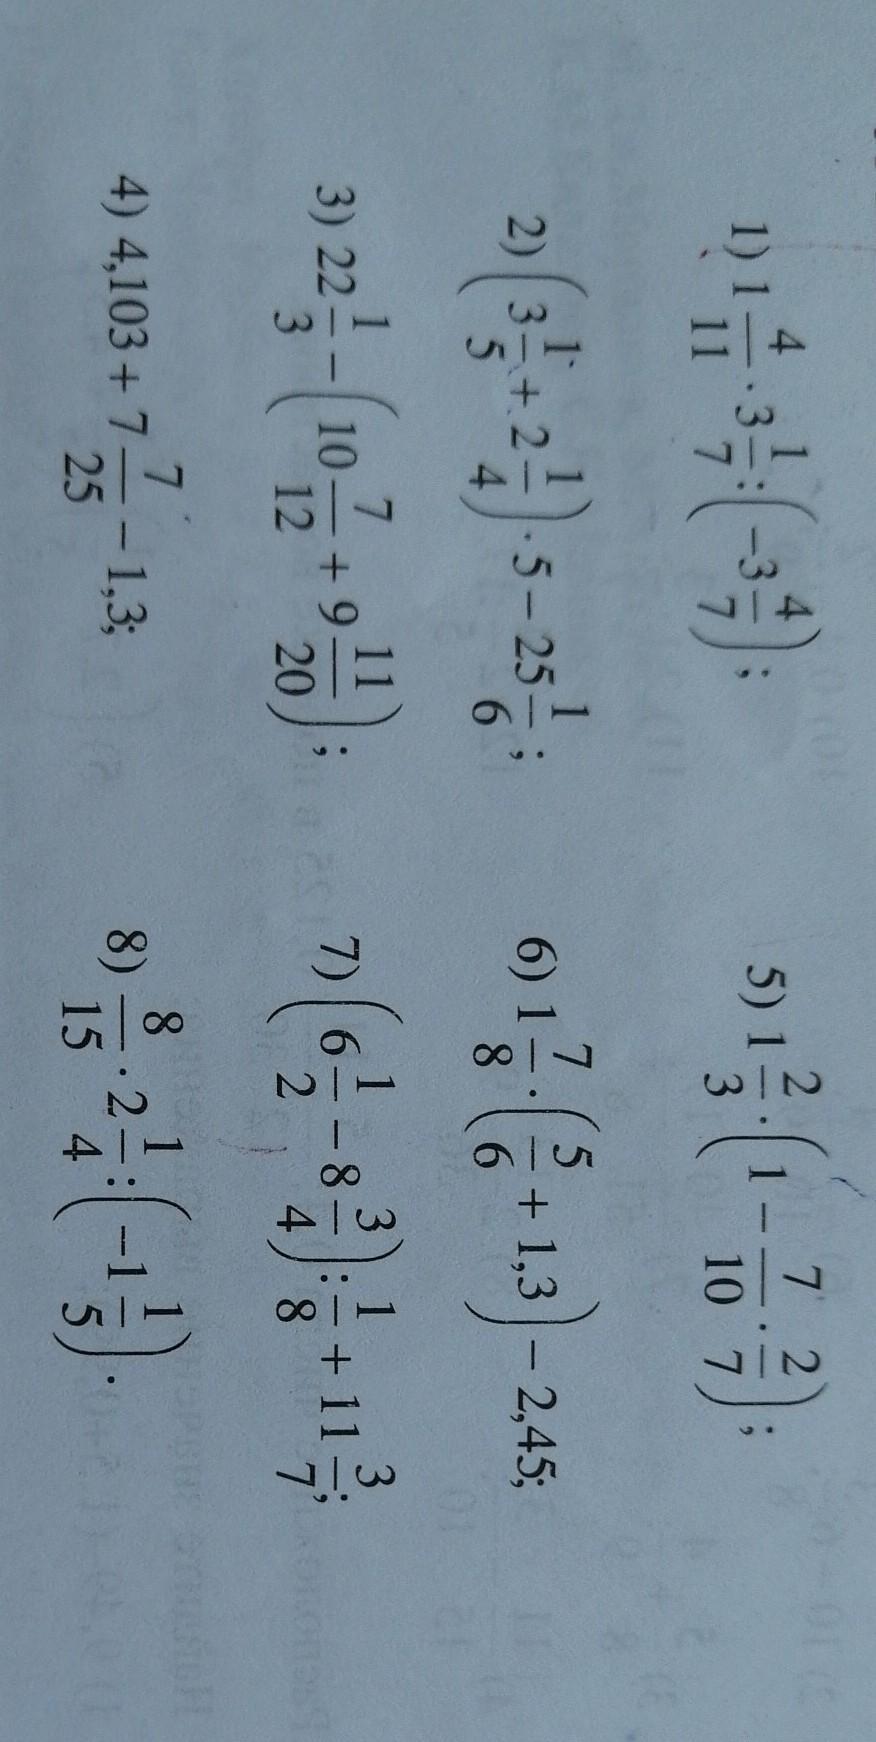 1) 1 4/11 · 3 1/7 : (−3 4/7);
2) (3 1/5 + 2 1/4) · 5 − 25 1/6;
3) 22 1/3 − (10 7/12 + 9 11/20);
4) 4,103 + 7 7/25 − 1,3;
5) 1 2/3 · (1 − 7/10 · 2/7);
6) 1 7/8 · (5/6 + 1,3) − 2,45;
7) (6 1/2 − 8 3/4) : 1/8 + 11 3/7;
8) 8/15 · 2 1/4 : (−1 1/5).